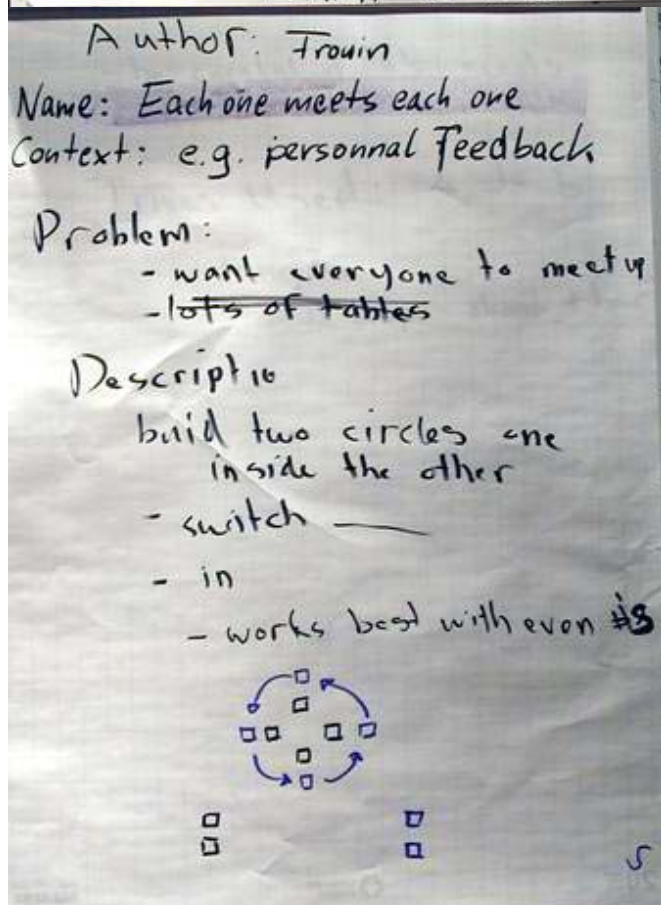 Author: Trouin
Name: Each one meets each one
Context: e.g. personnal Feedback
Problem:
- want everyone to meet up
- lots of tables
Descriptio
buid two circles one
inside the other
- switch
- in
- works best with even #s